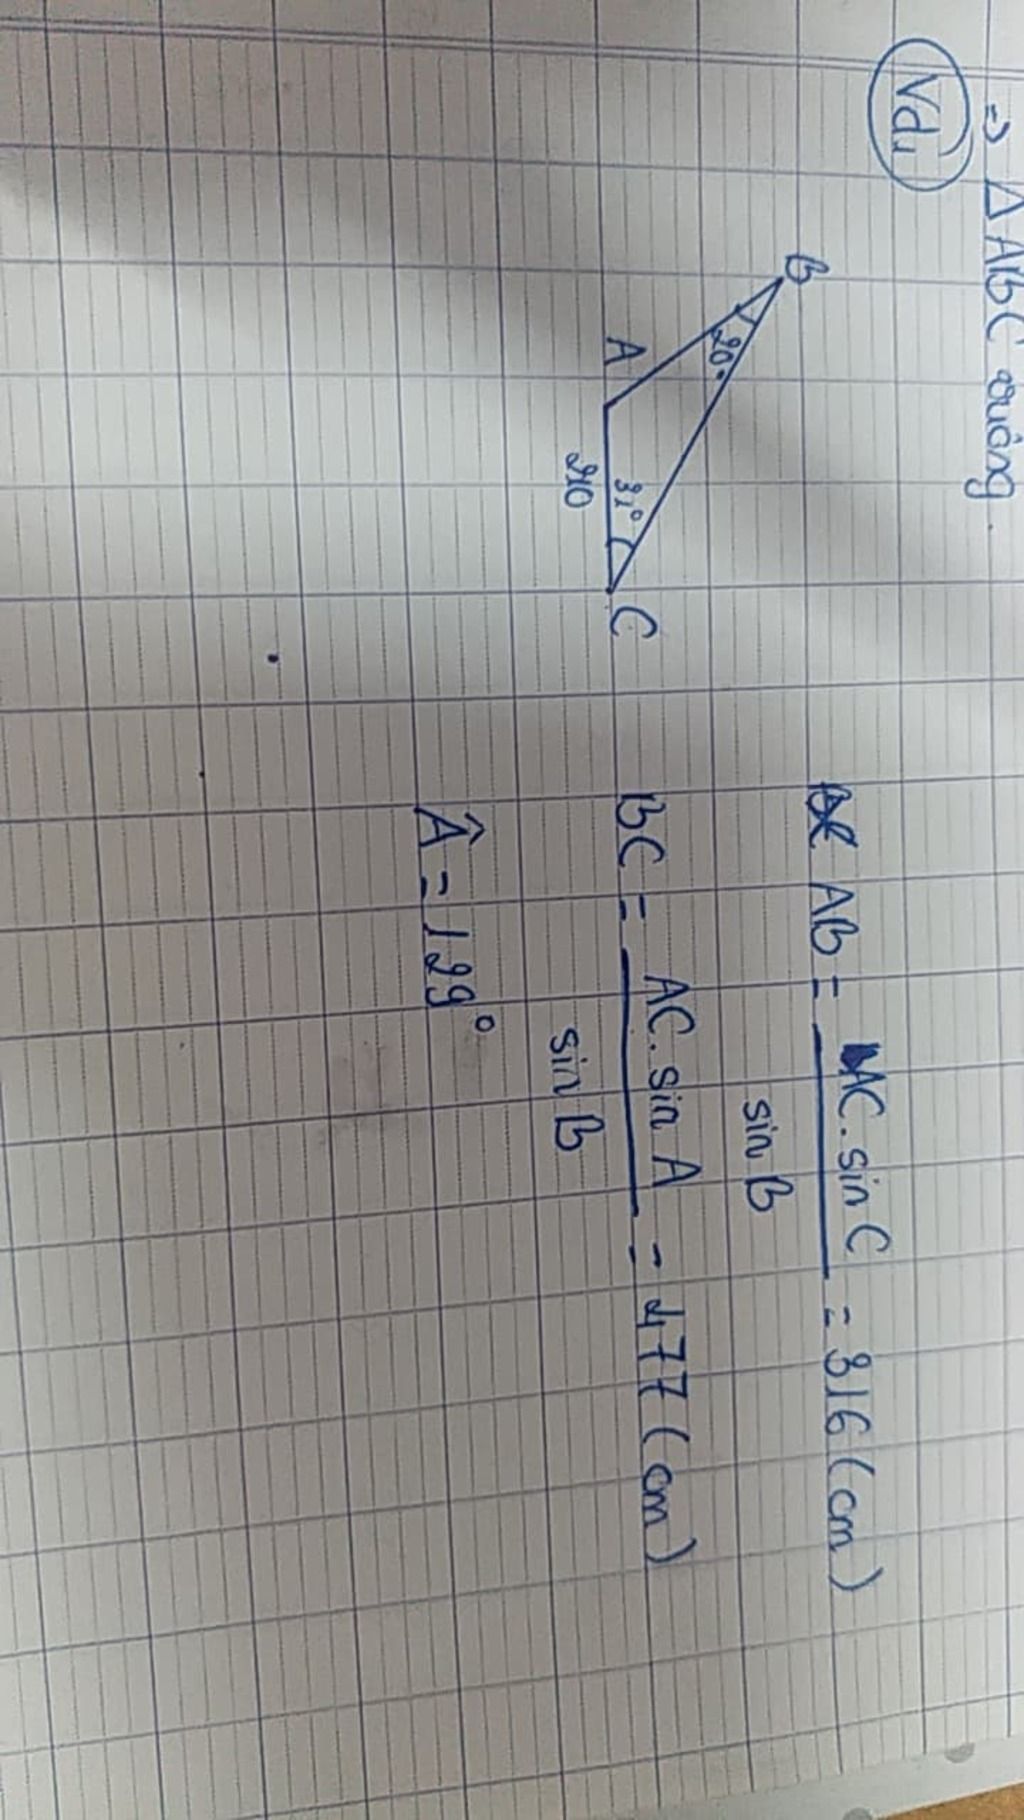 => △ABC vuông.
Vd1
B
20°
A
31°
C
210
AB = AC. sin C / sin B = 316 (cm)
BC = AC. sin A / sin B = 477 (cm)
Â = 129°